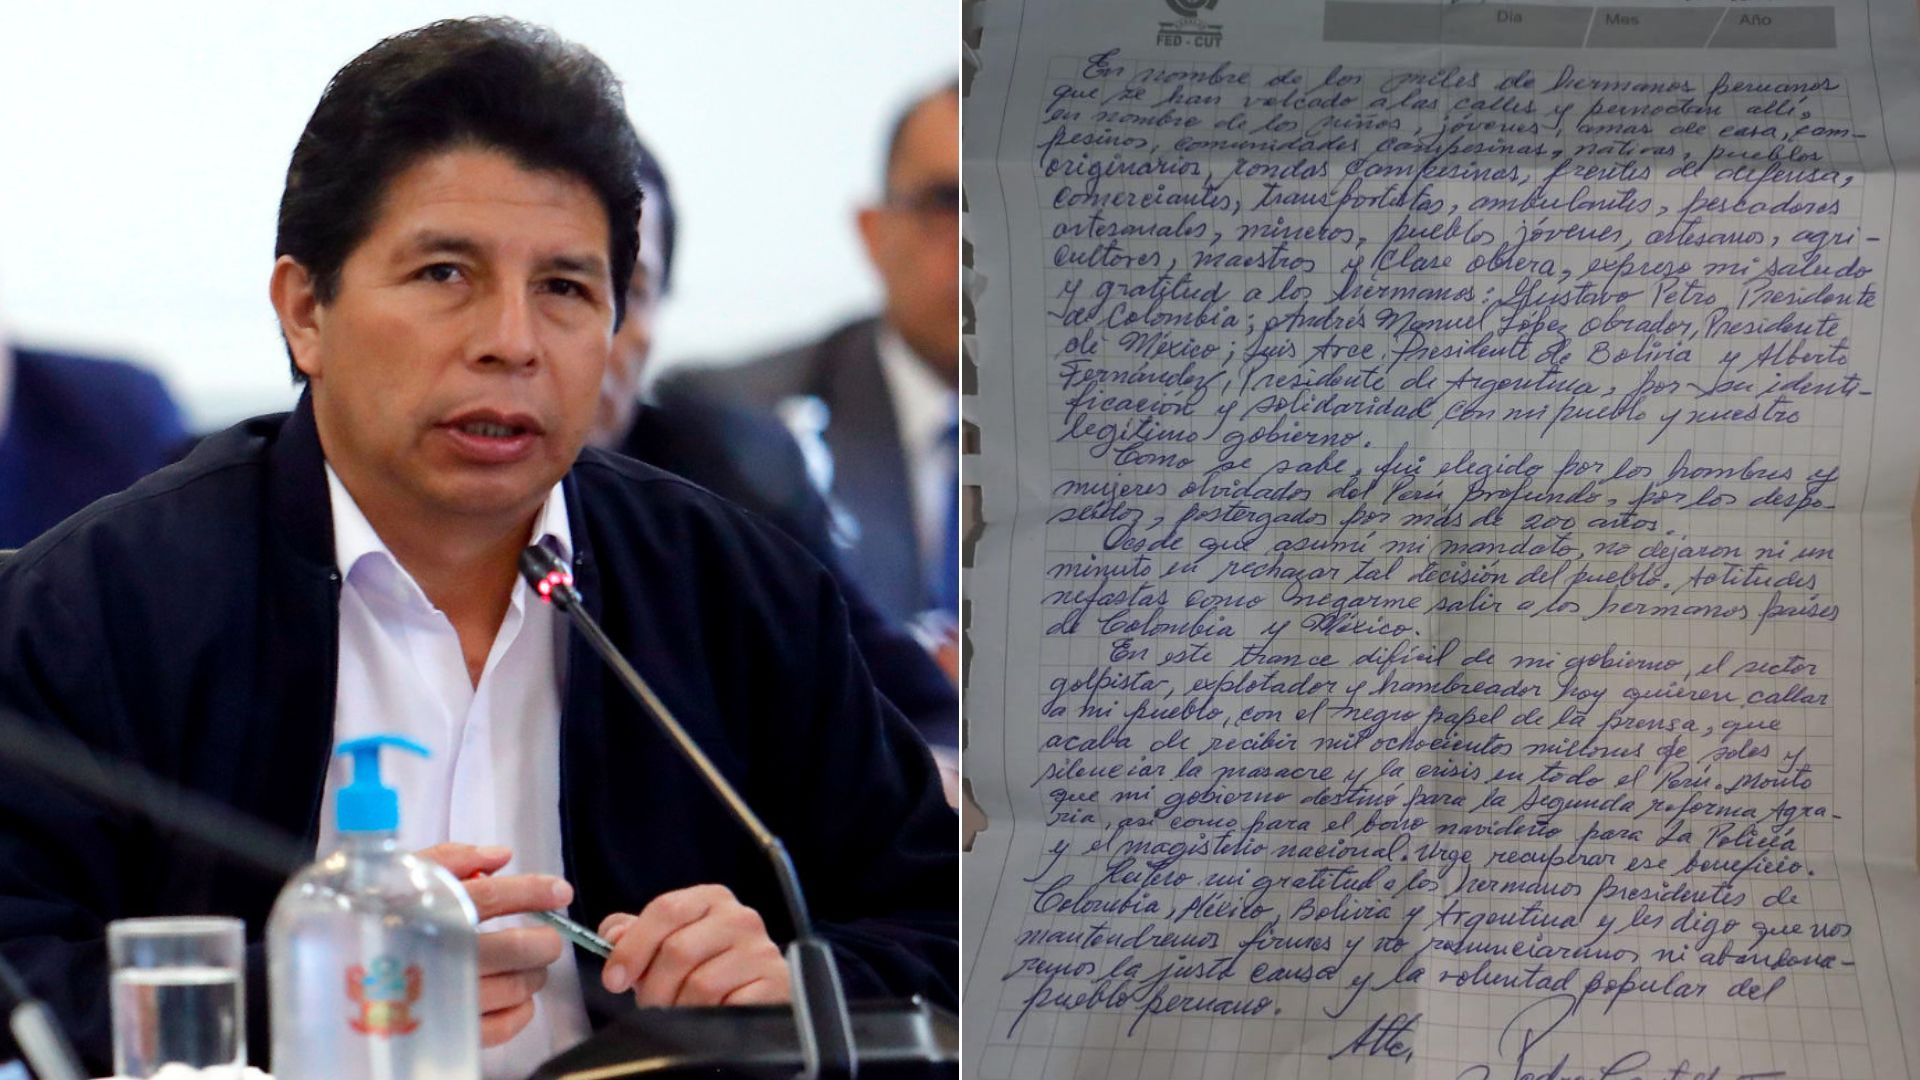 FED - CUT
Día Mes Año
En nombre de los miles de hermanos peruanos
que se han volcado a las calles y pernoctan allí,
en nombre de los niños, jóvenes, amas de casa, cam-
pesinos, comunidades campesinas, nativas, pueblos
originarios, rondas campesinas, frentes de defensa,
comerciantes, transportistas, ambulantes, pescadores
artesanales, mineros, pueblos jóvenes, artesanos, agri-
cultores, maestros y clase obrera, expreso mi saludo
y gratitud a los hermanos: Gustavo Petro, Presidente
de Colombia; Andrés Manuel López Obrador, Presidente
de México; Luis Arce, Presidente de Bolivia y Alberto
Fernández, Presidente de Argentina, por su identi-
ficación y solidaridad con mi pueblo y nuestro
legítimo gobierno.
Como se sabe, fui elegido por los hombres y
mujeres olvidados del Perú profundo, por los despo-
seídos, postergados por más de 200 años.
Desde que asumí mi mandato, no dejaron ni un
minuto en rechazar tal decisión del pueblo. Actitudes
nefastas como negarme salir a los hermanos países
de Colombia y México.
En este trance difícil de mi gobierno, el sector
golpista, explotador y hambreador hoy quieren callar
a mi pueblo, con el negro papel de la prensa, que
acaba de recibir mil ochocientos millones de soles y
silenciar la masacre y la crisis en todo el Perú. Monto
que mi gobierno destinó para la segunda reforma Agra-
ria, así como para el bono navideño para La Policía
y el magisterio nacional. Urge recuperar ese beneficio.
Reitero mi gratitud a los hermanos presidentes de
Colombia, México, Bolivia y Argentina y les digo que nos
mantendremos firmes y no renunciaremos ni abandona-
remos la justa causa y la voluntad popular del
pueblo peruano.
Atte,